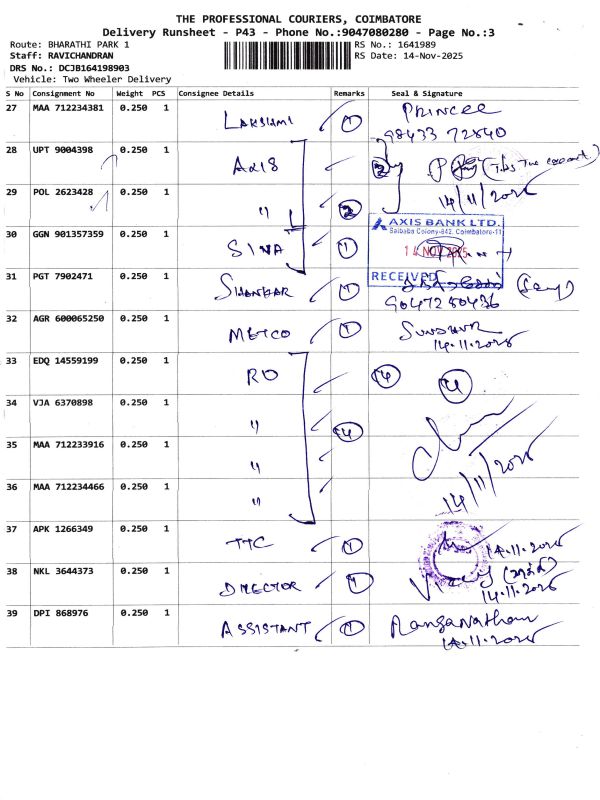 THE PROFESSIONAL COURIERS, COIMBATORE
Delivery Runsheet - P43 - Phone No.:9047080280 - Page No.:3
Route: BHARATHI PARK 1
RS No.: 1641989
Staff: RAVICHANDRAN
RS Date: 14-Nov-2025
DRS No.: DCJB164198903
Vehicle: Two Wheeler Delivery
S No Consignment No Weight PCS Consignee Details Remarks Seal & Signature
27 MAA 712234381 0.250 1 LAKSHMI 1 PRINCEE
98433 72840
28 UPT 9004398 0.250 1 AXIS 2
14/11/2025
29 POL 2623428 0.250 1 " 2
AXIS BANK LTD.
Saibaba Colony-842, Coimbatore-11
30 GGN 901357359 0.250 1 SIVA 1 14 NOV 2025
RECEIVED
31 PGT 7902471 0.250 1 SHANKAR 1
9047280436
32 AGR 600065250 0.250 1 METCO 1
14.11.2025
33 EDQ 14559199 0.250 1 RO 4 4
34 VJA 6370898 0.250 1 " 4
35 MAA 712233916 0.250 1 "
36 MAA 712234466 0.250 1 " 14/11/2025
37 APK 1266349 0.250 1 TTC 1 14.11.2025
38 NKL 3644373 0.250 1 DIRECTOR 1
14.11.2025
39 DPI 868976 0.250 1 ASSISTANT 1 Ranganathan
14.11.2025